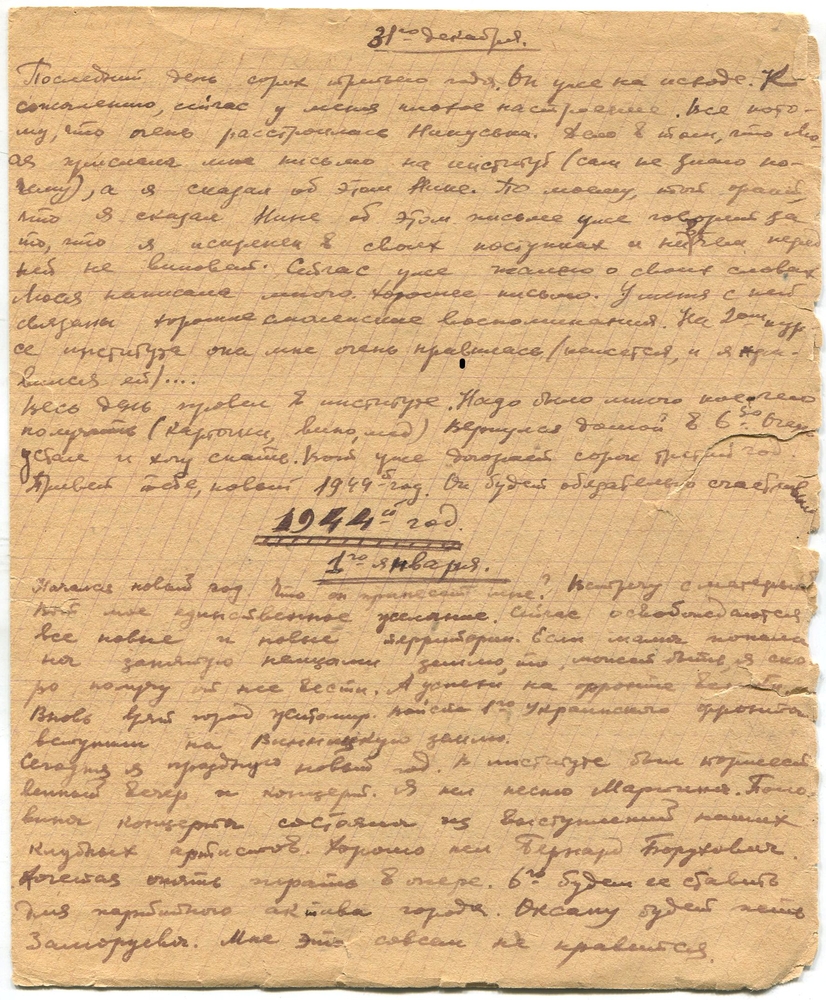 31го декабря.
Последний день сорок третьего года. Он уже на исходе. К
сожалению, сейчас у меня плохое настроение. Все пото-
му, что очень расстроилась Нинуська. Дело в том, что Лю-
ся прислала мне письмо на институт (сам не знаю по-
чему), а я сказал об этом Нине. По моему, этот
что я сказал Нине об этом письме уже говорит за
то, что я искренен в своих поступках и ни в чем перед
ней не виноват. Сейчас уже жалею о своих словах
Люся написала много. Хорошее письмо. У меня с ней
связаны хорошие смоленские воспоминания. На 2ом кур-
се института она мне очень нравилась (кажется, и я нра-
вился ей)....
Весь день провел в институте. Надо было много кое чего
получать (карточки, вино, мед) Вернулся домой в 6 Очень
устал и хочу спать. Вот уже догорает сорок третий год.
Привет тебе, новый 1944-й год. Он будет обязательно счастливым
1944й год.
1го января.
Начался новый год. Что он принесет мне? Встречу с матерью
вот мое единственное желание. Сейчас освобождаются
все новые и новые территории. Если мама попала
на занятую немцами землю, то, может быть, я ско-
ро получу от нее вести. А успехи на фронте
Вновь взят город Житомир. Войска 1го Украинского фронта
вступили на Винницкую землю.
Сегодня я праздную новый год. В институте был торжест
венный вечер и концерт. Я пел песню Мартина. Поло-
вина концерта состояла из выступлений наших
клубных артистов. Хорошо пел Бернард Борухович.
Хочется опять играть в опере. 6го будем ее ставить
для партийного актива города. Оксану будет петь
Заморуева. Мне это совсем не нравится.